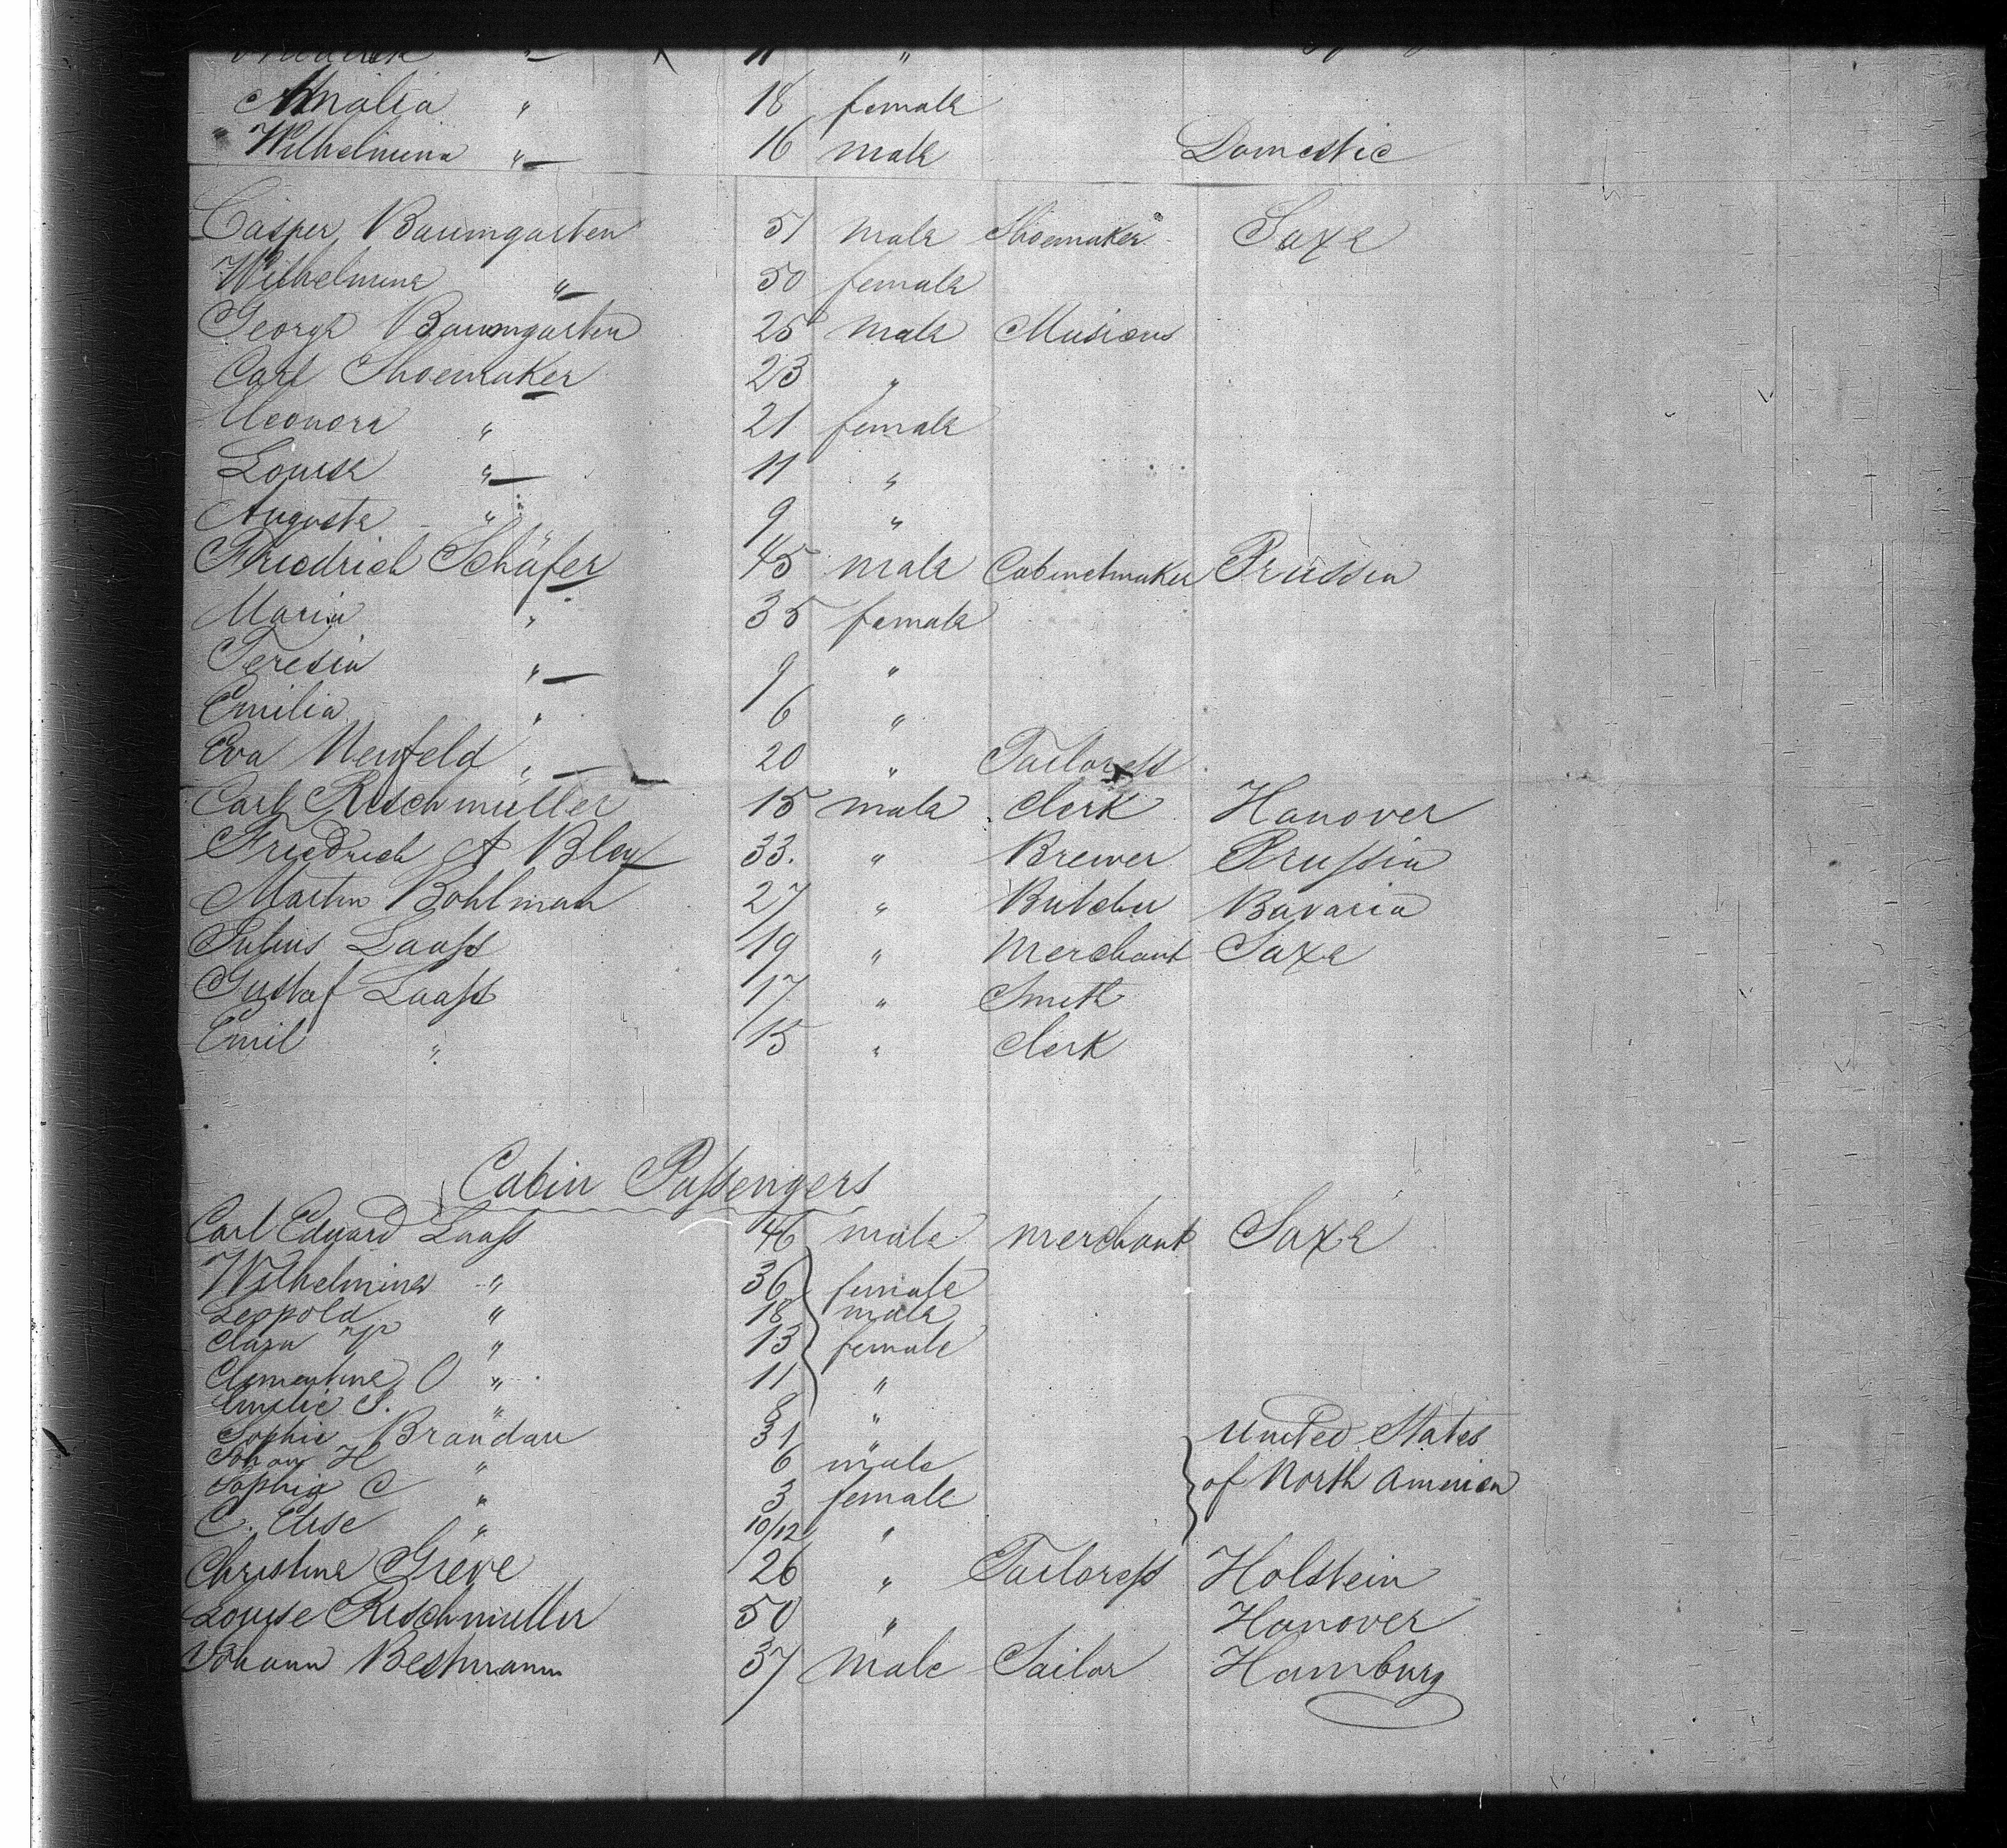 Amalia " 18 female
Wilhelmina " 16 male Domestic
Casper Baumgarten 51 male Shoemaker Saxe
Wilhelmine " 50 female
George Baumgarten 25 male Musicus
Carl Shoemaker 23 "
Eleonora " 21 female
Louise " 11 "
Augusta " 9 "
Friedrich Schäfer 45 male Cabinetmaker Prussia
Maria " 35 female
Teresia " 9 "
Emilia " 6 "
Eva Neufeld " 20 " Tailoress
Carl Rischmüller 15 male Clerk Hanover
Friedrich A Bley 33. " Brewer Prussia
Martin Bohlman 27 " Butcher Bavaria
Julius Laass 19 " Merchant Saxe
Gustaf Laass 17 " Smith
Emil " 15 " Clerk
Cabin Passengers
Carl Eduard Laass 46 male merchant Saxe
Wilhelmine " 36 female
Leopold " 18 male
Clara " 13 female
Clementine O " 11 "
Emilie S. " 8 "
Sophie Brandau 31 " United States
Johan H " 6 male
Sophia C " 3 female of North America
C. Elise " 10/12 "
Christine Greve 26 " Tailoress Holstein
Louise Rischmuller 50 " Hanover
Johann Bestmann 37 male Sailor Hamburg